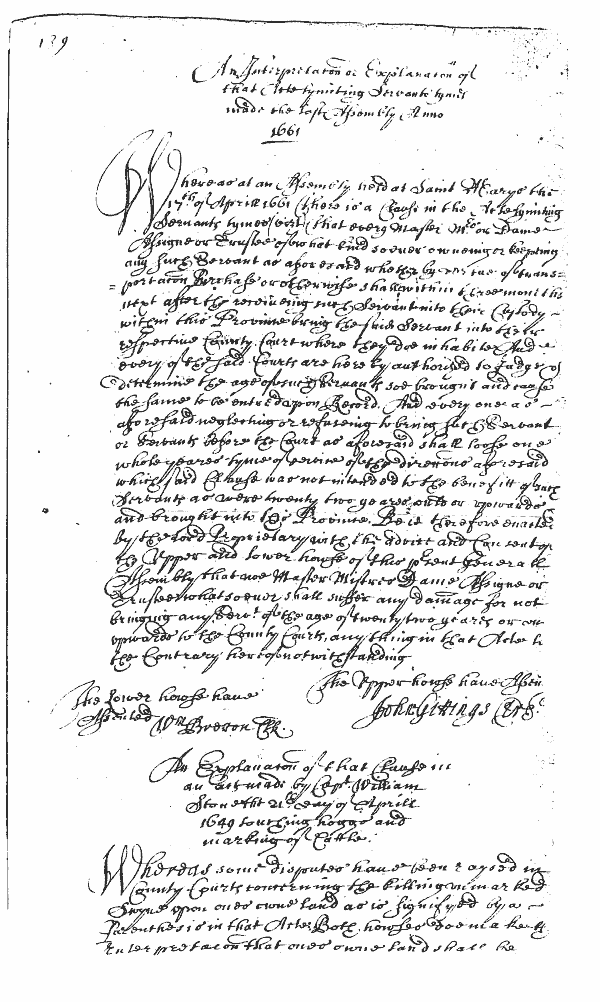 139
An Interpretacon or Explanacon of
that Acte lymiting Servants tymes
made the last Assembly Anno
1661
Whereas at an Assembly held at Saint Maryes the
17th of Aprill 1661 there is a Clause in the Acte lymiting
Servants tymes vizt that every Master Mrs or Dame
Assigne or Trustee of what kind soever owneing or keeping
any such Servant as aforesaid whether by vertue of trans=
=portacon Purchase or otherwise shall within three months
next after the receiveing such Servant into their Custody
within this Province bring the said Servant into their
respective County Court where they doe inhabite And
every of the said Courts are hereby authorised to Judge &
determine the age of such Servants soe brought and cause
the same to be entred upon Record. And every one as
aforesaid neglecting or refuseing to bring such Servant
or Servants before the Court as aforesaid shall loose one
whole yeares tyme of service of the aforesaid
which said Clause was not intended to the benefitt of such
Servants as were twenty two yeares old or upwards
and brought into this Province. Be it therefore enacted
by the Lord Proprietary with the advice and Consent of
the Upper and lower howse of this present Generall
Assembly that noe Master Mistres Dame Assigne or
Trustee whatsoever shall suffer any damage for not
bringing any Servt of the age of twenty two yeares or
upwards to the County Courts, any thing in that Acte to
the Contrary hereof notwithstanding
The Lower howse have
Assented Wm Bretton Clk.
The Upper howse have Assen
John Gittings Clk
An Explanacon of that Clause in
an Act made by Capt William
Stone the 21th day of Aprill
1649 touching hoggs and
marking of Cattle.
Whereas some disputes have been raysed in
County Courts concerning the killing unmarked
Swyne upon ones owne land as is signifyed by a
Parenthesis in that Acte Both howses doe make the
Enterpretacon that ones owne land shall be